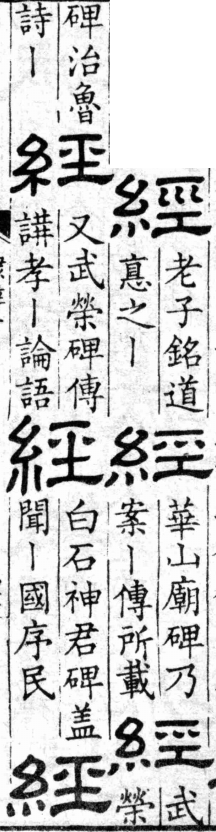 經
老子銘道
悳之丨
經
華山廟碑乃
案丨傳所載
經
武
榮
碑治魯
詩丨
經
又武榮碑傳
講孝丨論語
經
白石神君碑蓋
聞丨國序民
經